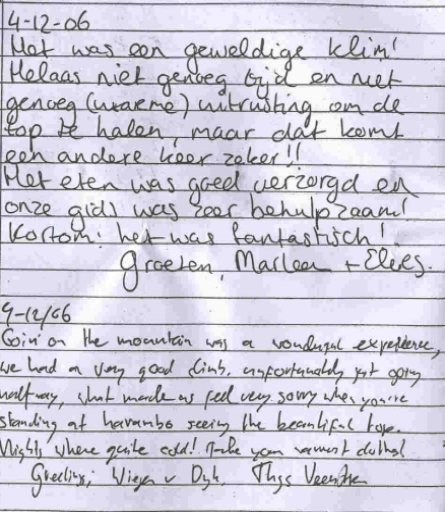 4-12-06
Het was een geweldige klim!
Helaas niet genoeg tijd en niet
genoeg (warme) uitrusting om de
top te halen, maar dat komt
een andere keer zeker!!
Het eten was goed verzorgd en
onze gids was zeer behulpzaam!
Kortom: het was fantastisch!
Groeten, Marleen + Elies.
4-12/06
Goin' on the mountain was a wonderful experience,
we had a very good climb. unfortunately just going
halfway, what made us feel very sorry when you're
standing at barranbo seeing the beautiful tops.
Nights where quite cold! Take your warmest clothes!
Greetings, v Dyk, Thys Veenstra